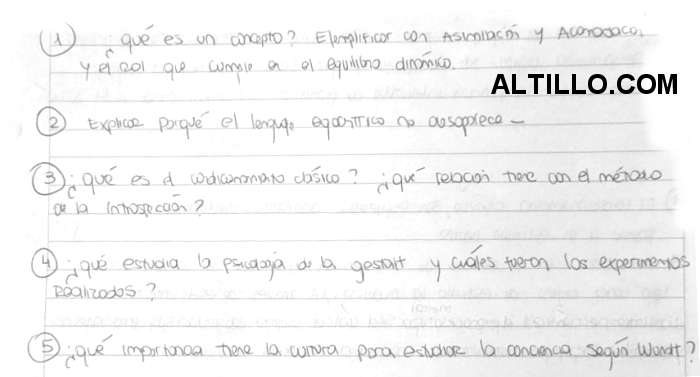 1 ¿qué es un concepto? Ejemplificar con Asimilación y Acomodació.
y el rol que cumple en el equilibrio dinámico.
ALTILLO.COM
2 Explicar porqué el lenguaje egocéntrico no desaparece -
3 ¿qué es el condicionamiento clásico? ¿qué relación tiene con el método
de la introspección?
4 ¿qué estudia la psicología de la gestalt y cuáles fueron los experimentos
realizados?
5 ¿qué importancia tiene la cultura para estudiar la conciencia según Wundt?